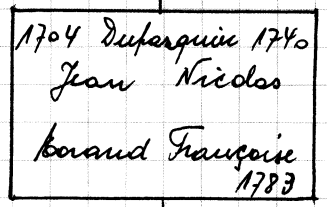 1704 Dupasquier 1740
Jean Nicolas
Borand Françoise
1783